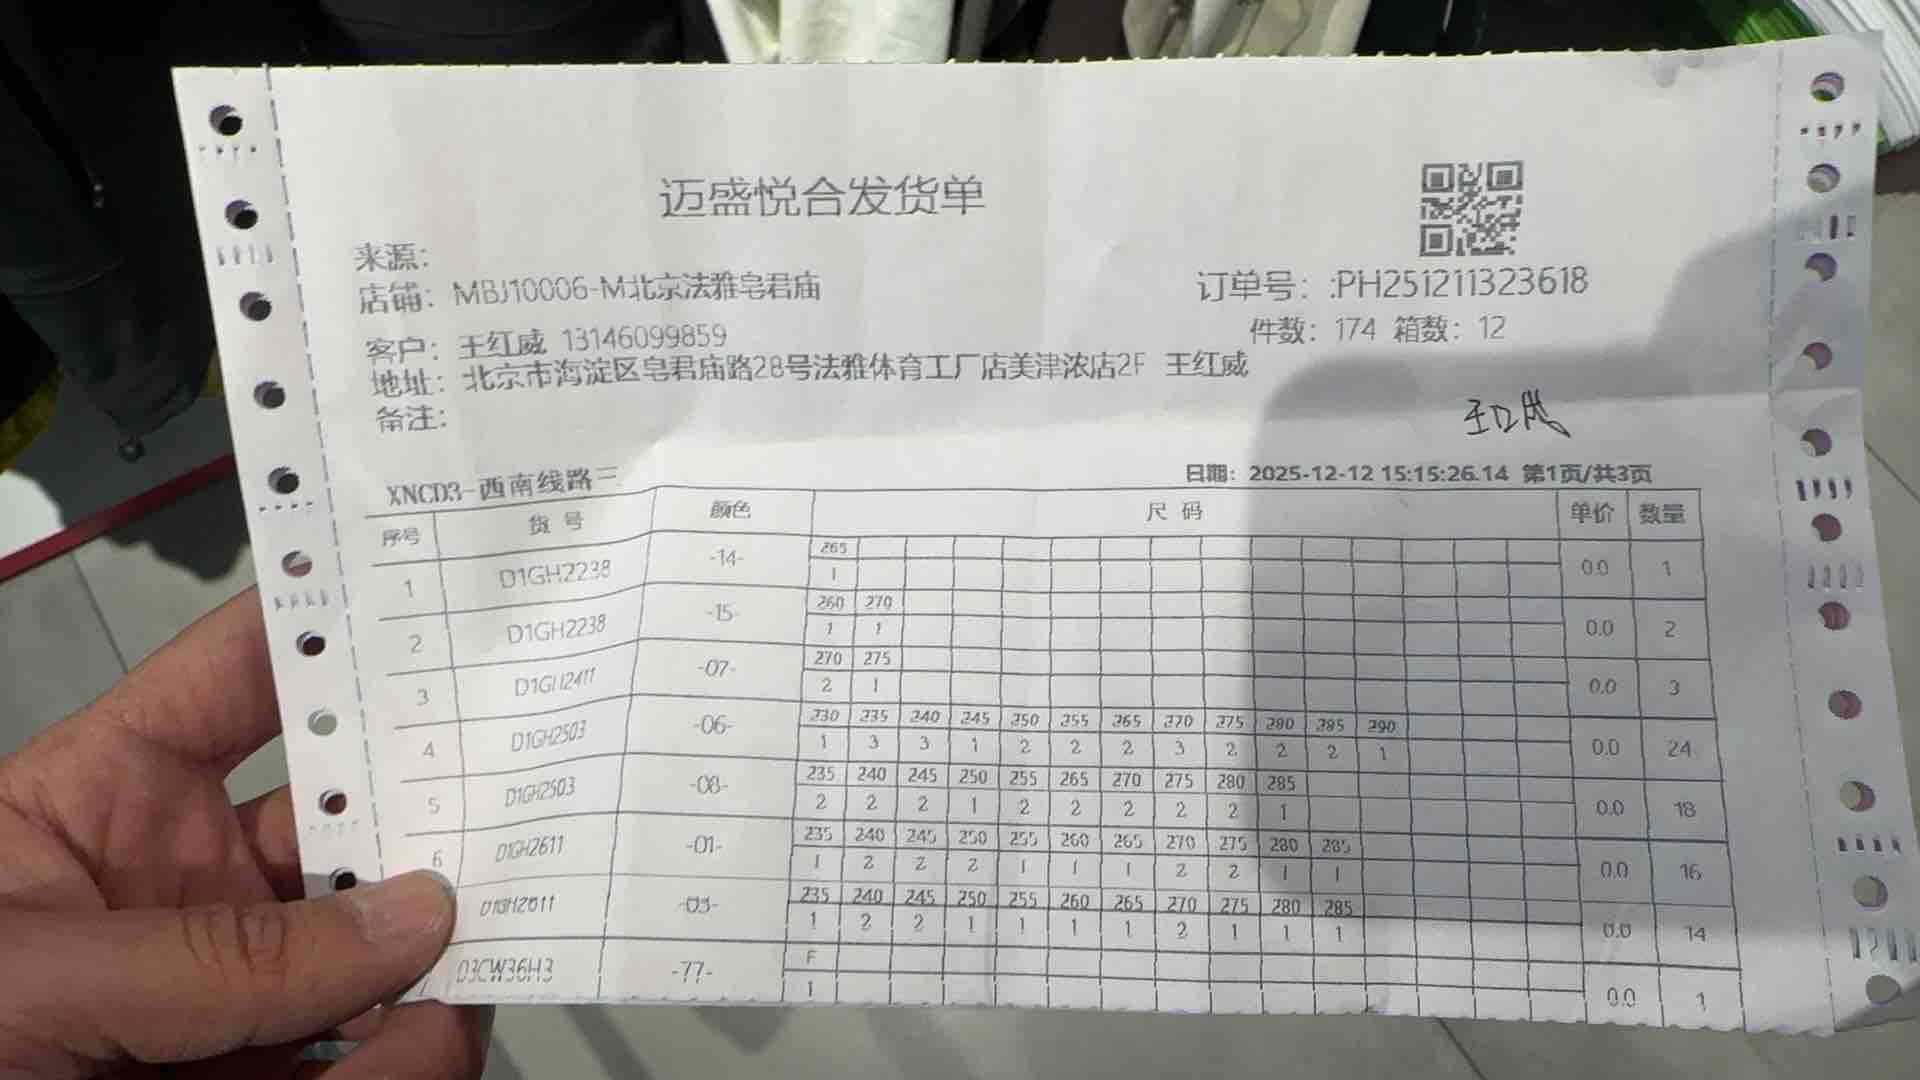 迈盛悦合发货单
来源：
店铺：MBJ10006-M北京法雅皂君庙
订单号：:PH251211323618
客户：王红威 13146099859
件数：174 箱数：12
地址：北京市海淀区皂君庙路28号法雅体育工厂店美津浓店2F 王红威
备注：
XNCD3-西南线路三
日期：2025-12-12 15:15:26.14 第1页/共3页
序号 货号 颜色 尺码 单价 数量
265
1 D1GH2238 -14- 0.0 1
1
260 270
2 D1GH2238 -15- 0.0 2
1 1
270 275
3 D1GH2411 -07- 0.0 3
2 1
230 235 240 245 250 255 265 270 275 280 285 290
4 D1GH2503 -06- 0.0 24
1 3 3 1 2 2 2 3 2 2 2 1
235 240 245 250 255 265 270 275 280 285
5 D1GH2503 -08- 0.0 18
2 2 2 1 2 2 2 2 2 1
235 240 245 250 255 260 265 270 275 280 285
6 D1GH2611 -01- 0.0 16
1 2 2 2 1 1 1 2 2 1 1
235 240 245 250 255 260 265 270 275 280 285
D1GH2611 -03- 0.0 14
1 2 2 1 1 1 1 2 1 1 1
F
D3CW36H3 -77- 0.0 1
1